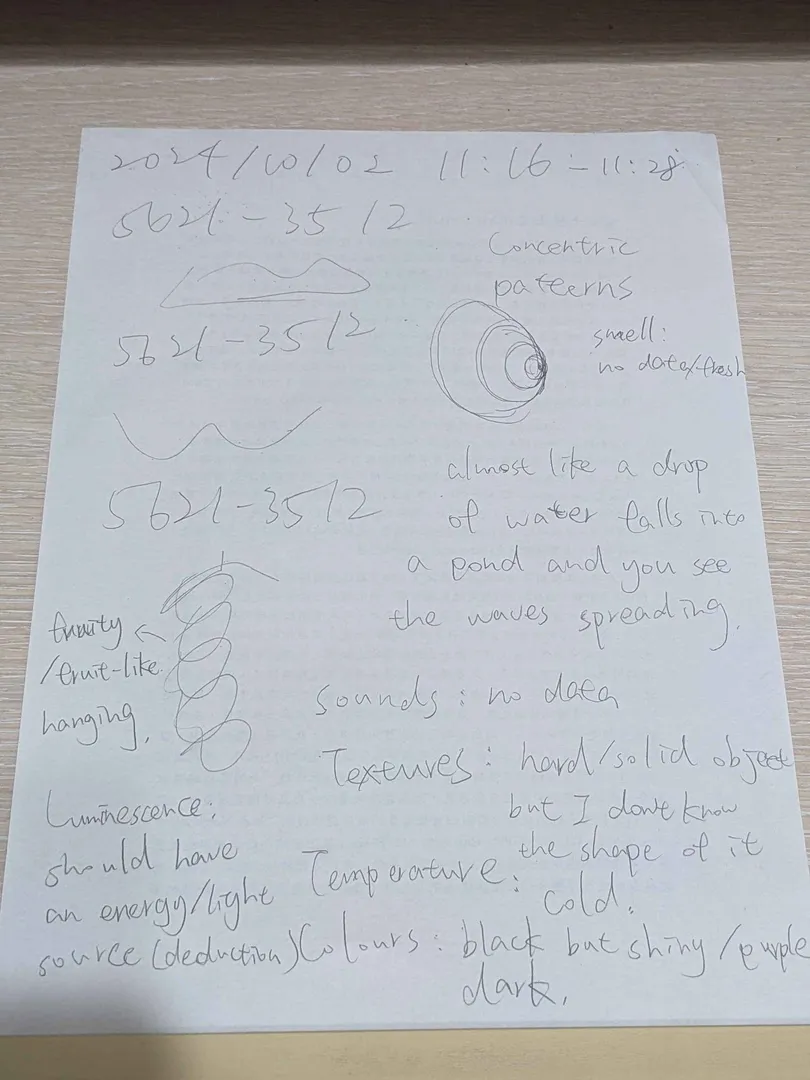 2024/10/02 11:16-11:28
5621-3512
Concentric
patterns
5621-3512
smell:
no data/fresh
5621-3512
almost like a drop
of water falls into
a pond and you see
the waves spreading.
/fruit-like
hanging.
Sounds: no data
Textures: hard/solid object
but I don't know
the shape of it
Luminescence:
should have
an energy/light
source (deduction)
Temperature:
cold.
Colours: black but shiny/purple
dark.